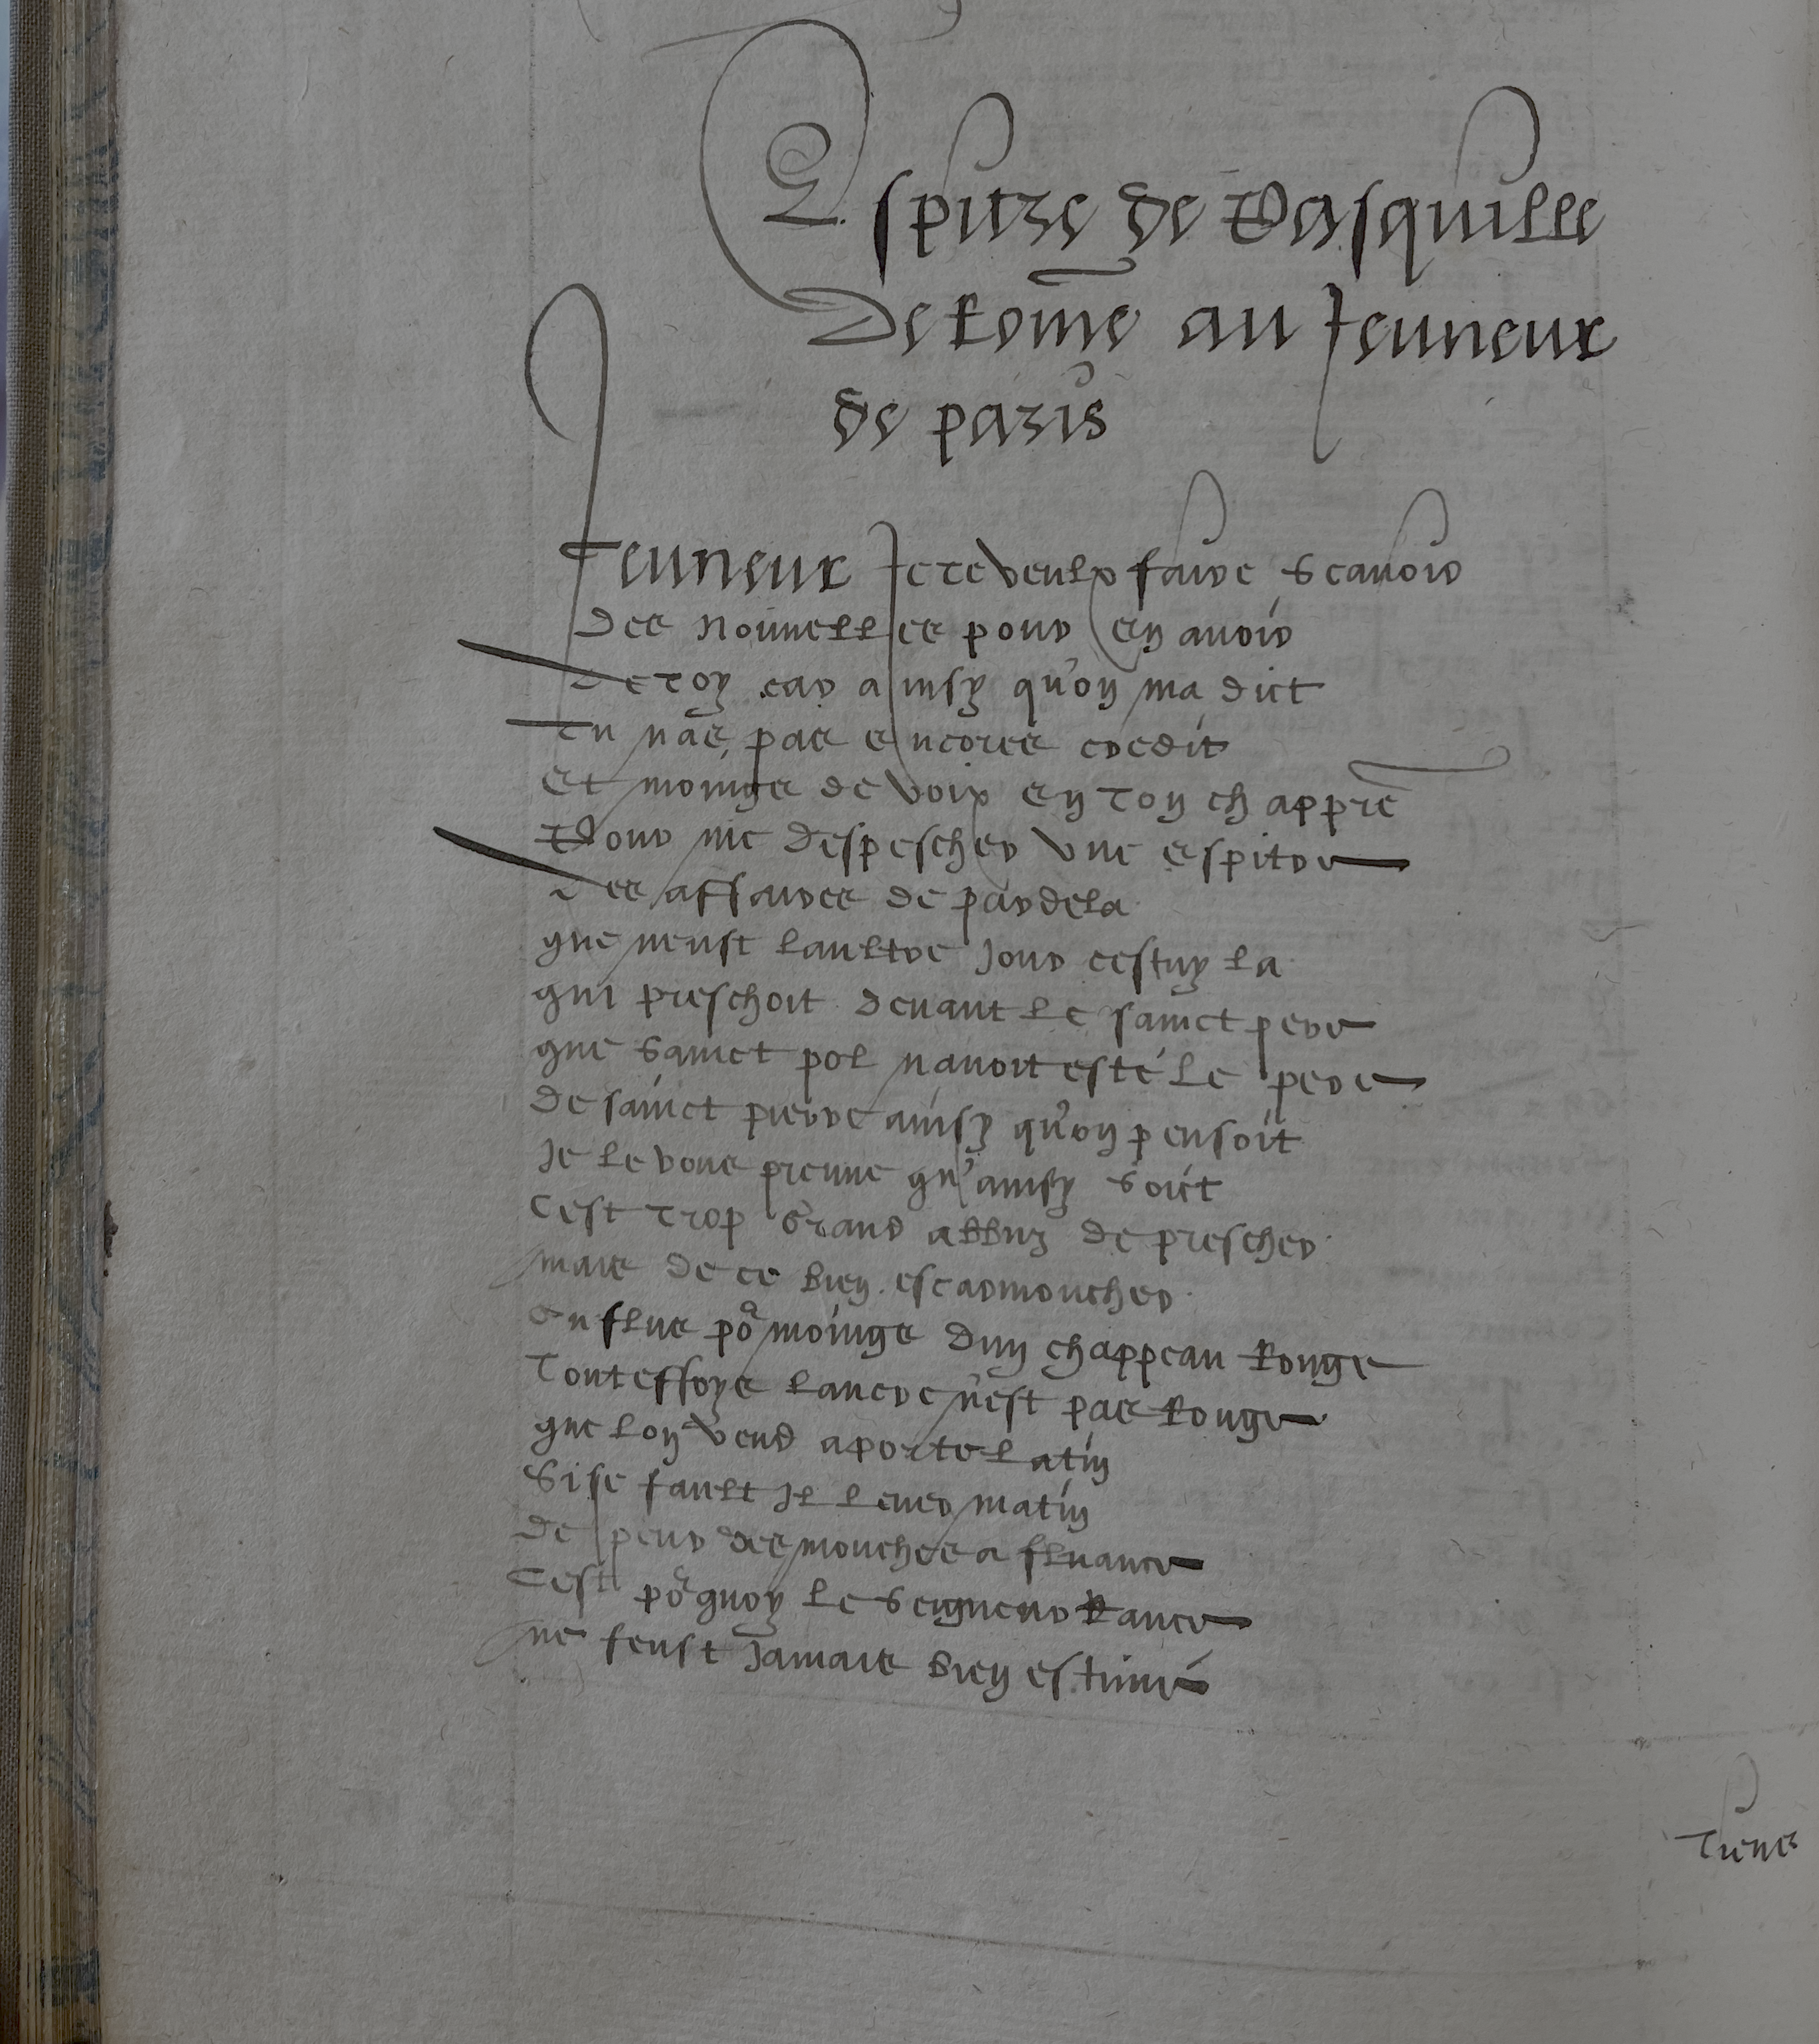 Espitre de Pasquille
de Romme au Jeuneur
de paris
Jeuneur Je te veulx faire scavoir
des nouvelles pour en avoir
de toy car ainsy qu'on ma dict
Tu nas pas encores credit
et moings de voix en ton chappre
Pour me despescher une espitre
des affaires de par dela
que neust laultre jour cestuy la
qui preschoit devant le sainct pere
que sainct pol navoit esté le pere
de sainct pierre ainsy qu'on pensoit
Je le vous preuve qu'ainsy soit
Cest trop grand abbuz de prescher
mais de ce bien escarmoucher
on flue po^r moings dun chappeau Rouge
Touteffoys lancre n'est pas Rouge
que lon vend a porte latin
Si se fault Il lever matin
de peur des mouches a fluance
Cest po^rquoy le seigneur Rance
ne feust jamais bien estimé
Tienes